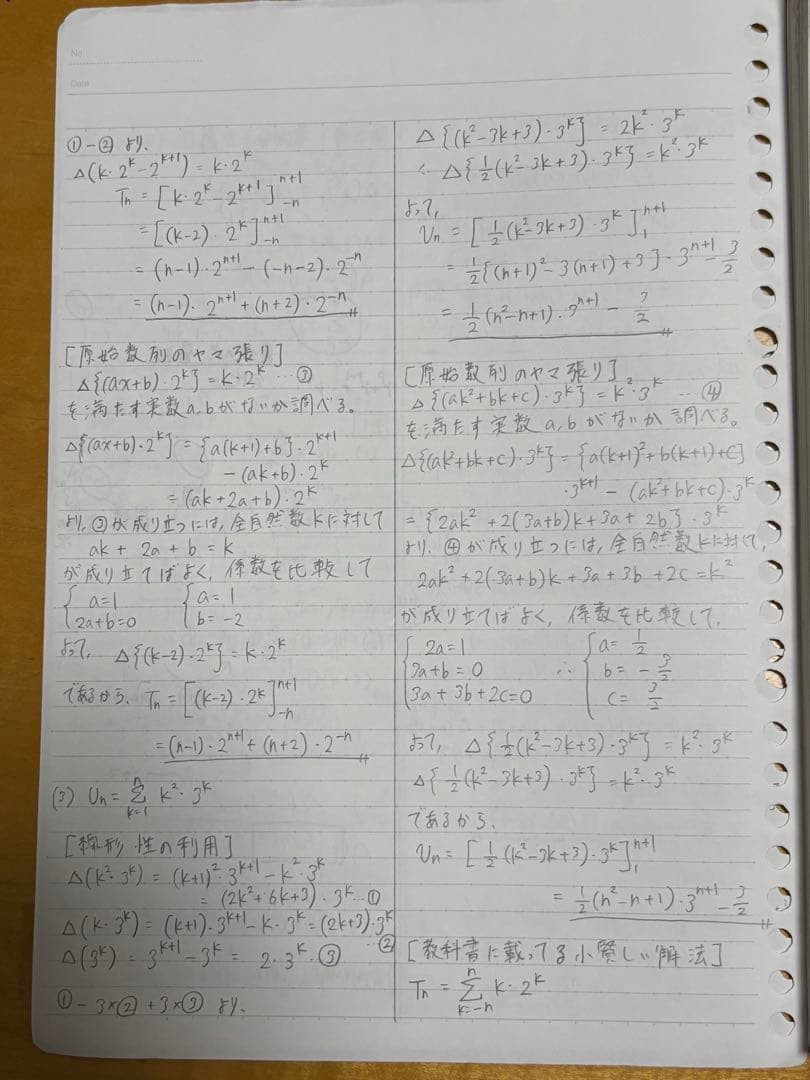 No.
Date
①-② より.
Δ(k・2^k-2^{k+1}) = k・2^k
Tn = [k・2^k-2^{k+1}]_{-n}^{n+1}
= [(k-2)・2^k]_{-n}^{n+1}
= (n-1)・2^{n+1} - (-n-2)・2^{-n}
= (n-1)・2^{n+1} + (n+2)・2^{-n}
[原始数列のヤマ張り]
Δ{(ax+b)・2^k} = k・2^k …③
を満たす実数a,bがないか調べる。
Δ{(ax+b)・2^k} = {a(k+1)+b}・2^{k+1}
-(ak+b)・2^k
= (ak+2a+b)・2^k
より,③が成り立つには,全自然数kに対して
ak + 2a + b = k
が成り立てばよく,係数を比較して
{a=1 {a=1
{2a+b=0 {b=-2
よって, Δ{(k-2)・2^k} = k・2^k
であるから, Tn = [(k-2)・2^k]_{-n}^{n+1}
= (n-1)・2^{n+1} + (n+2)・2^{-n}
(3) Un = Σ_{k=1}^{n} k^2・3^k
[線形性の利用]
Δ(k^2・3^k) = (k+1)^2・3^{k+1} - k^2・3^k
= (2k^2+6k+3)・3^k …①
Δ(k・3^k) = (k+1)・3^{k+1} - k・3^k = (2k+3)・3^k …②
Δ(3^k) = 3^{k+1} - 3^k = 2・3^k …③
①-3×②+3×③ より.
Δ{(k^2-3k+3)・3^k} = 2k^2・3^k
∴ Δ{1/2(k^2-3k+3)・3^k} = k^2・3^k
よって,
Un = [1/2(k^2-3k+3)・3^k]_1^{n+1}
= 1/2{(n+1)^2-3(n+1)+3}・3^{n+1} - 3/2
= 1/2(n^2-n+1)・3^{n+1} - 3/2
[原始数列のヤマ張り]
Δ{(ak^2+bk+c)・3^k} = k^2・3^k …④
を満たす実数a,bがないか調べる。
Δ{(ak^2+bk+c)・3^k} = {a(k+1)^2+b(k+1)+c}
・3^{k+1} - (ak^2+bk+c)・3^k
= {2ak^2+2(3a+b)k+3a+2b}・3^k
より. ④が成り立つには,全自然数kに対して,
2ak^2+2(3a+b)k+3a+3b+2c = k^2
が成り立てばよく,係数を比較して,
{2a=1 {a=1/2
{3a+b=0 ∴ {b=-3/2
{3a+3b+2c=0 {c=3/2
よって, Δ{1/2(k^2-3k+3)・3^k} = k^2・3^k
Δ{1/2(k^2-3k+3)・3^k} = k^2・3^k
であるから,
Un = [1/2(k^2-3k+3)・3^k]_1^{n+1}
= 1/2(n^2-n+1)・3^{n+1} - 3/2
[教科書に載ってる小賢しい解法]
Tn = Σ_{k=-n}^{n} k・2^k